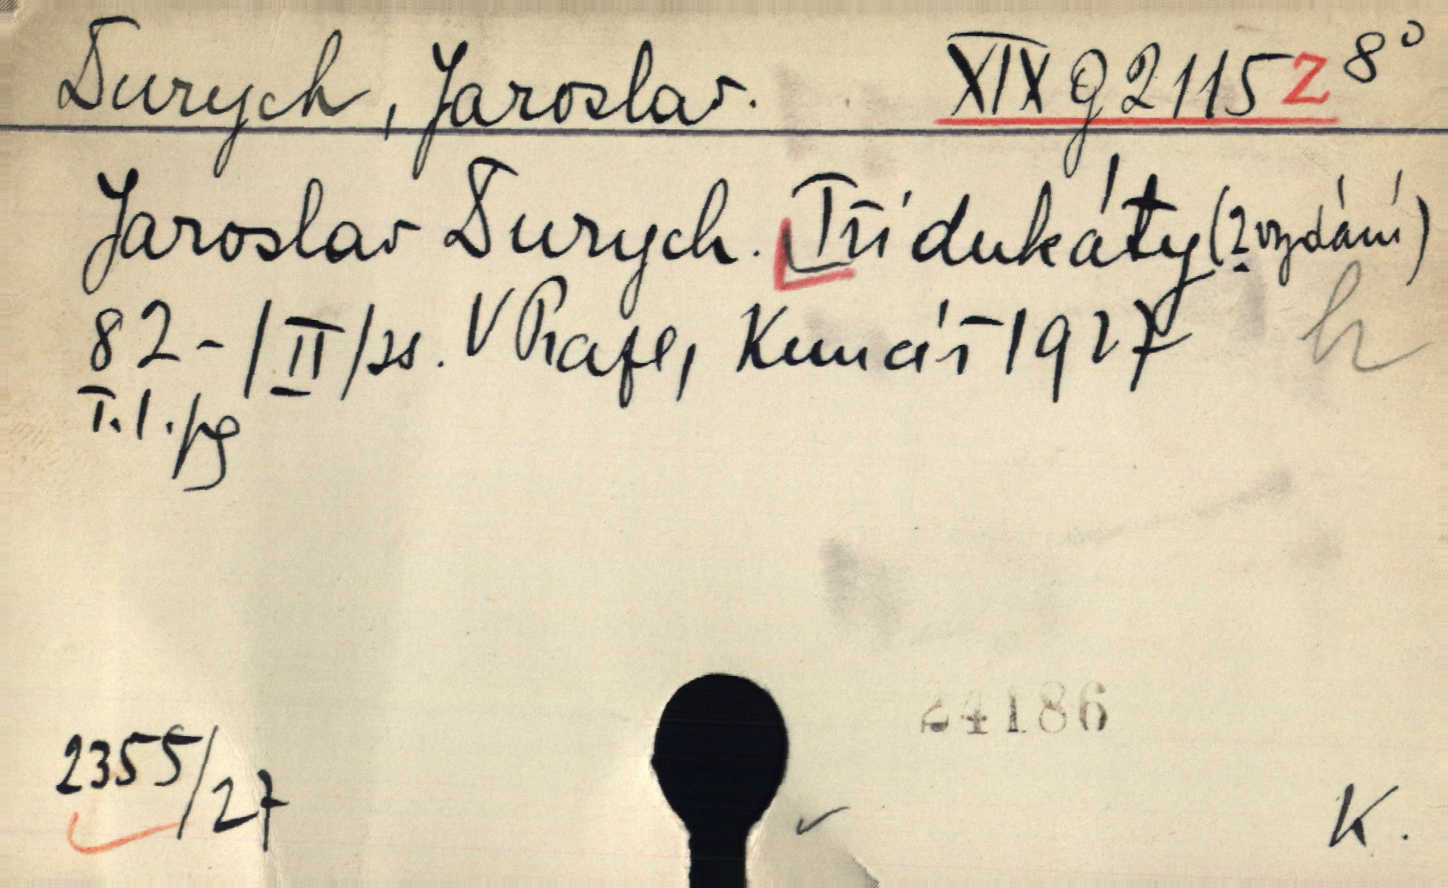 Durych, Jaroslav. XIX G 2115 Z 8°
Jaroslav Durych. Tři dukáty (2 vydání)
82 - /II/ ss. V Praze, Kuncíř 1927
T. l. pg
24186
2355/27
K.